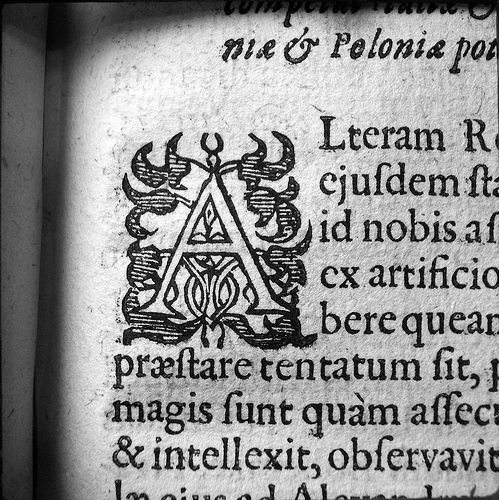 niæ & Poloniæ pot
ALteram R
ejuſdem ſta
id nobis aſ
ex artificio
bere quean
præſtare tentatum ſit, p
magis ſunt quàm aſſect
& intellexit, obſervavit
In ejus ad